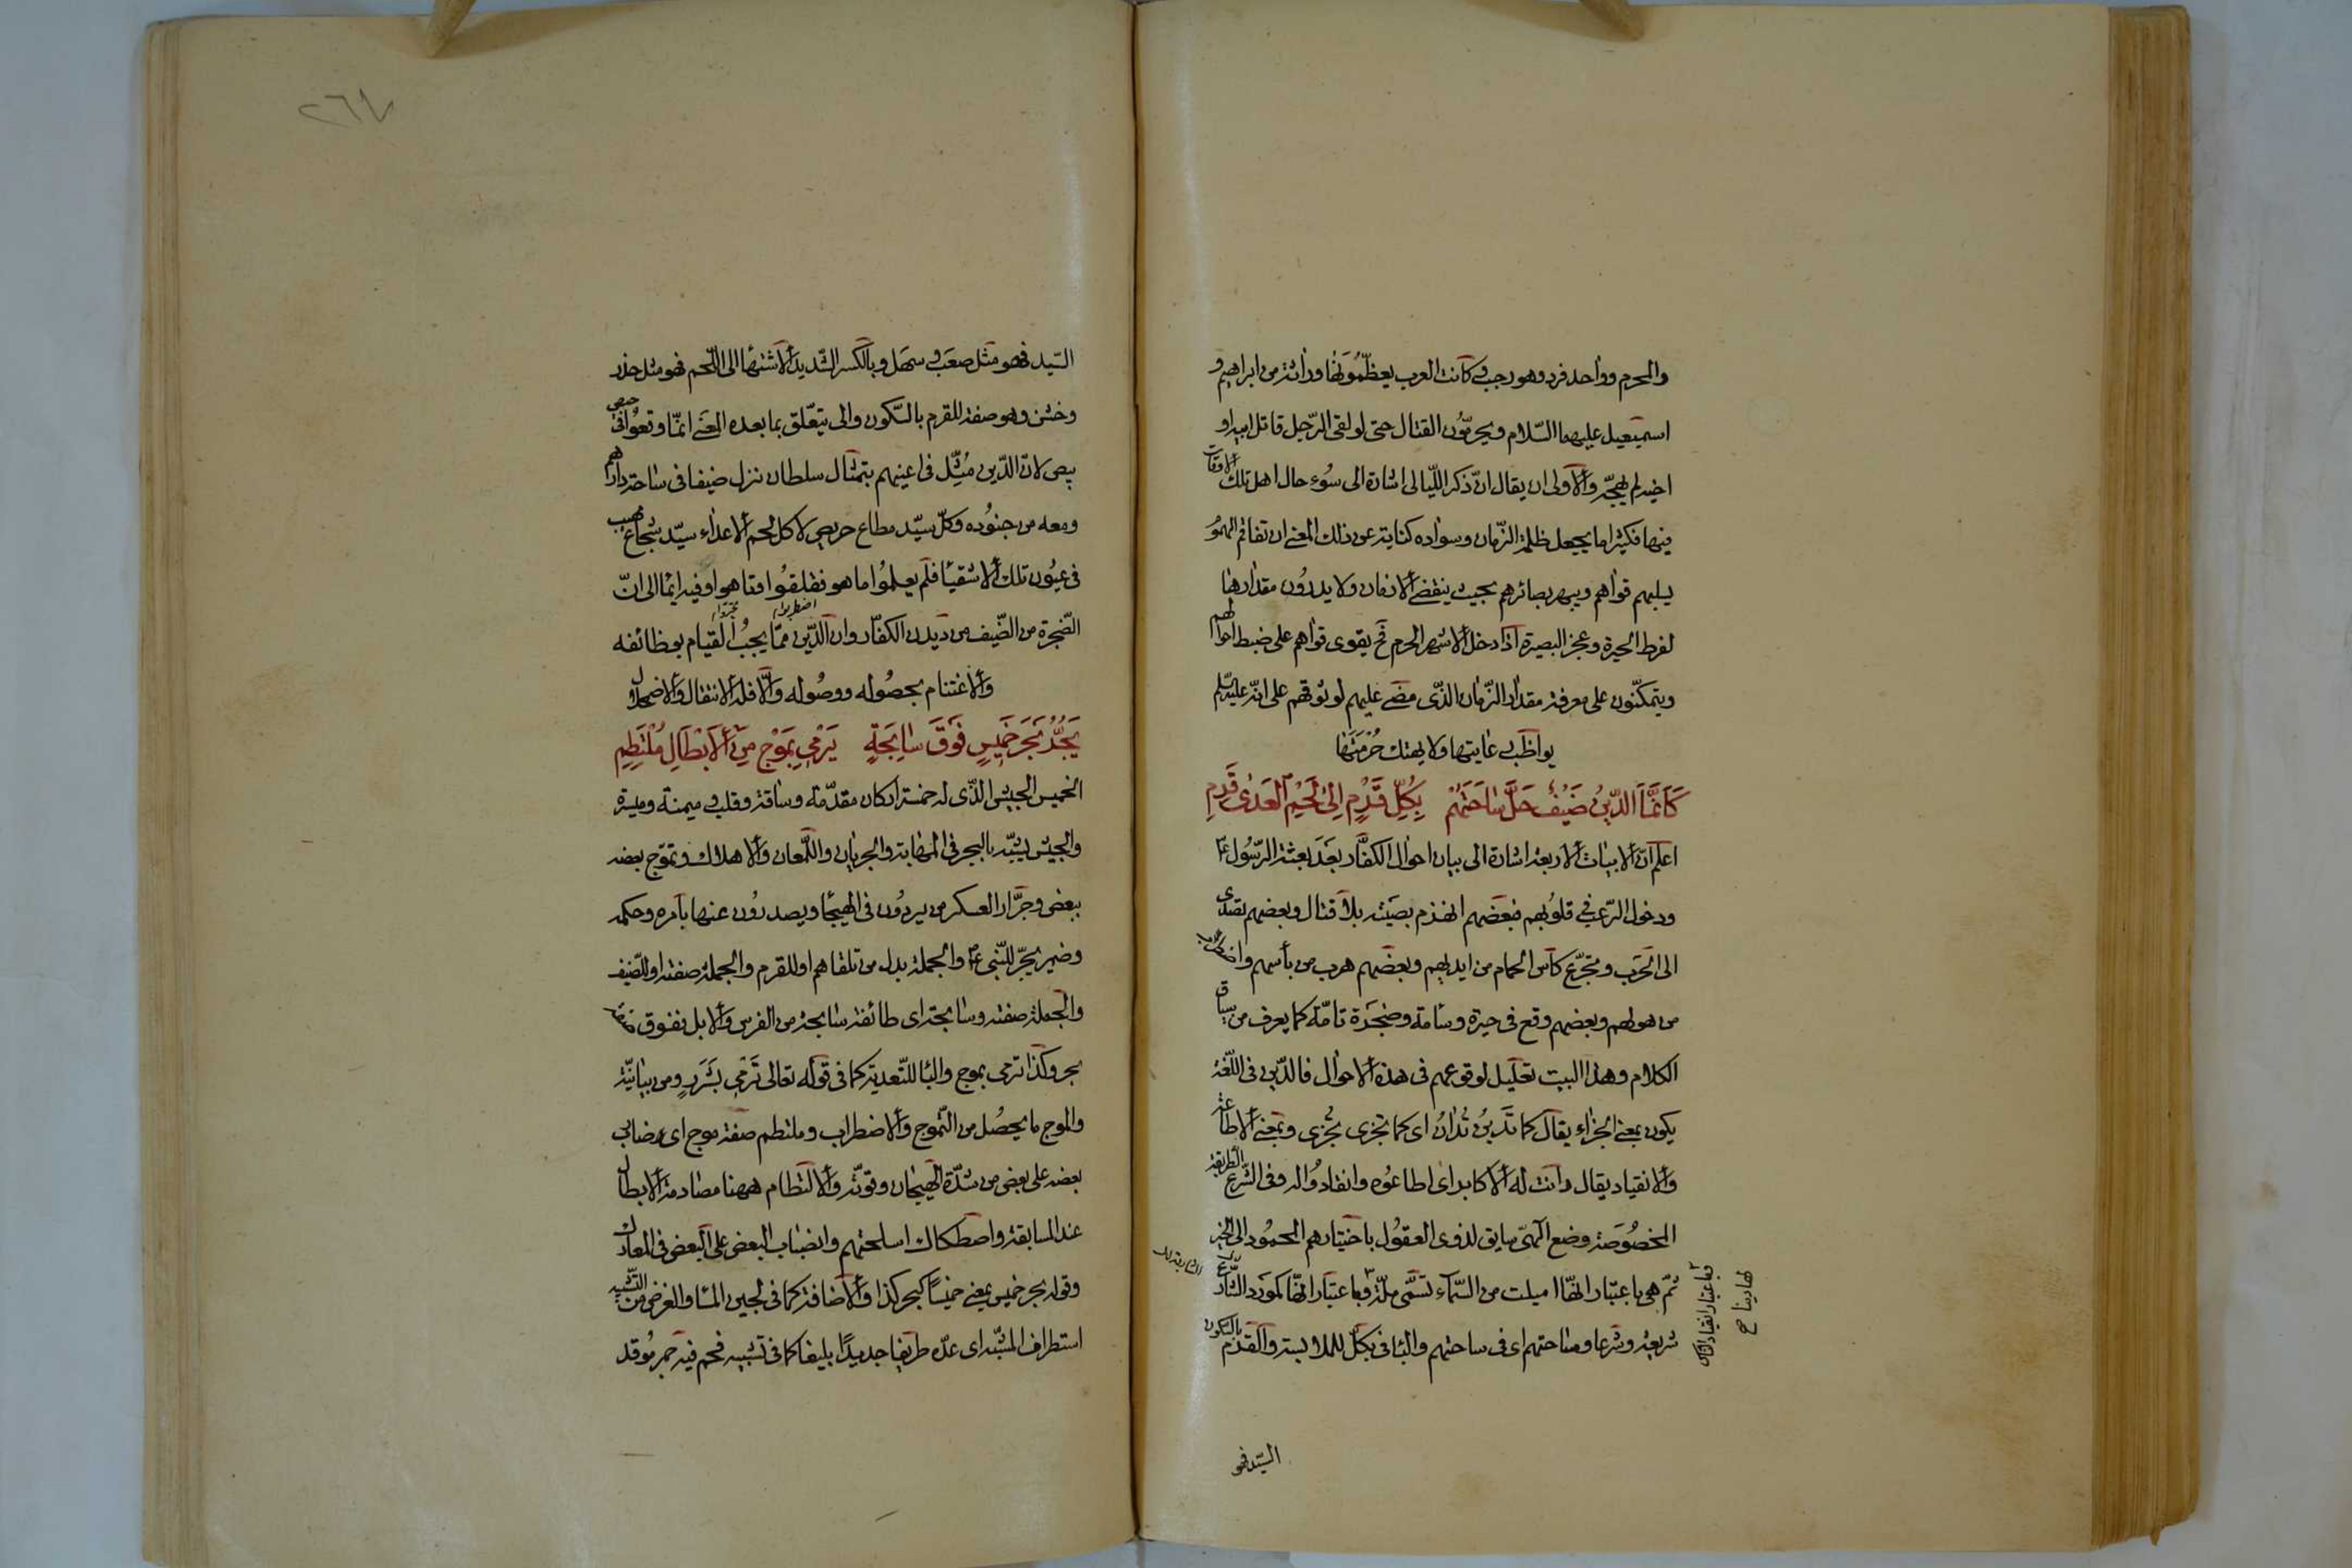 والمحرم وواحد فرد وهو رجب وكانت العرب يعظّمونها وراثة من ابراهيم و
اسمعيل عليهما السّلام ويحرّمون القتال حتى لو لقى الرّجل قاتل ابيه او
اخيه لم يهجّه والاولى ان يقال انّ ذكر اللّيالى اشارة الى سُوء حال اهل تلك الاوقات
فيها فكثيرا ما يجعل ظلمة الزّمان وسواده كناية عن ذلك المعنى ان تفاقم الهمُوم
يسلبهم قواهم ويبهر بصائرهم بحيث ينقضى الازمان ولا يدرُون مقدارها
لفرط الحيرة وعجز البصيرة اذا دخل الاشهر الحرم فح يقوى قواهم على ضبط احوالهم
ويتمكّنون على معرفة مقدار الزّمان الذّى مضى عليهم لوثوقهم على انّه عليه السّلم
يواظب رعايتها ولا يهتك حُرْمَتَها
كَاَنَّمَا الدّينُ ضَيْفٌ حَلَّ سَاحَتَهُمْ بِكُلِّ قَرْمٍ اِلىٰ لَحْمِ العَدىٰ قَرِمِ
اعلم انّ الابيات الاربعة اشارة الى بيان احوال الكفّار بَعد بعثة الرّسُول ع
ودخول الرّعب فى قلوبهم فبعضهم انهزم بصيته بلا قتال وبعضهم تصدى
الى الحَرب وتجرّع كاَس الحمام من ايديهم وبعضهم هرب من بأسهم واضطراب
من هولهم وبعضهم وقع فى حيرة وسأمة وضجرة تامّة كما يعرف من سياق
الكلام وهذا البيت تعليل لوقوعهم فى هذه الاحوال فالدّين فى اللّغة
يكون بمعنى الجزاء يقال كما تدين تُدان اى كما تجزى تُجزى وبمعنى الاطاعة
والانقياد يقال دانت له الاكابر اى اطاعُوه وانقادُوا له وفى الشّرع الطريقة
المخصُوصَة وضع الهىّ سايق لذوى العقُول باختيارهم المحمُود الى الخير
ثمّ هى باعتبار انّها امليت من السّمآء تسمّى ملّة وباعتبار انّها كمورد الشّارع
شريعة وشرعا وساحتهم اى فى ساحتهم والباء فى بكلّ للملابسة والقرم بالسّكون
وباعتبار انقياد الناس
لها دينا صح
السّيد فهو
٢٦٧
السّيد فهو مثل صعَب وسهَل وبالكسر الشّديد الاشتهاء الى اللّحم فهو مثل حذر
وخشن وهو صفة للقرم بالسّكون والى يتعّلق بما بعده المعنى انمّا وقعُوا فى حيص
بيص لانّ الدّين مُثِّل فى اعينهم بتمثال سلطان نزل ضيفا فى ساحة دارهم
ومعه من جنُوده وكلّ سيّد مطاع حريص لاكل لحم الاعداء سيّد شجاع مهيب
فى عيُون تلك الاشقيا فلم يعلمُوا ما هو فقلقوُا فقاهوا وفيه ايماء الى انّ
الضّجرة من الضّيف من ديدن الكفّار وان الدّين ممّا يجبُ القيام بوظائفه
والاغتنام بحصُوله ووصُوله والّا فله الانتقال والاضمحلال
يَجُرُّ بَحْرَ خَمِيسٍ فَوْقَ سَابِحَةٍ يَرْمِى بِمَوْجٍ مِنَ الاَبْطَالِ مُلْتَطِمِ
الخميس الجيش الذّى له خمسة اركان مقدّمة وساقة وقلب وميمنة وميسرة
والجيش يشبّه بالبحر فى المهابة والجريان واللّمعان والاهلاك وتموّج بعضه
ببعض وجرّار العسكر من يردُون فى الهيجا ويصدرُون عنها بامره وحكمه
وضمير يجرّ للنّبى ع والجملة بدل من تلقاهم او للقرم والجملة صفته او للضّيف
والجملة صفته وسابحة اى طائفة سابحة من الفرس والابل نفوق صفة
بحر وكذا ترمى بموج والبا للتّعدية كما فى قوله تعالى تَرْمى بشَرَرٍ ومن بيانيّة
والموج ما يحصُل من التّموج والاضطراب وملتطم صفة موج اى يضارب
بعضه على بعض من شدّة الهَيجان وقوّته والالتطام ههنا مصادمة الابطال
عند المسابقة واصطكاك اسلحتهم وانصباب البعض على البعض فى المعارك
وقوله بحر خميس بمعنى خميسًا كبحر كذا والاضافة كما فى لجين الماء والغرض من التّشبيه
استطراف المشبّه اى عدّه طريفا جديدًا بليغا كما فى تشبيه فحم فيه جمر مُوقد